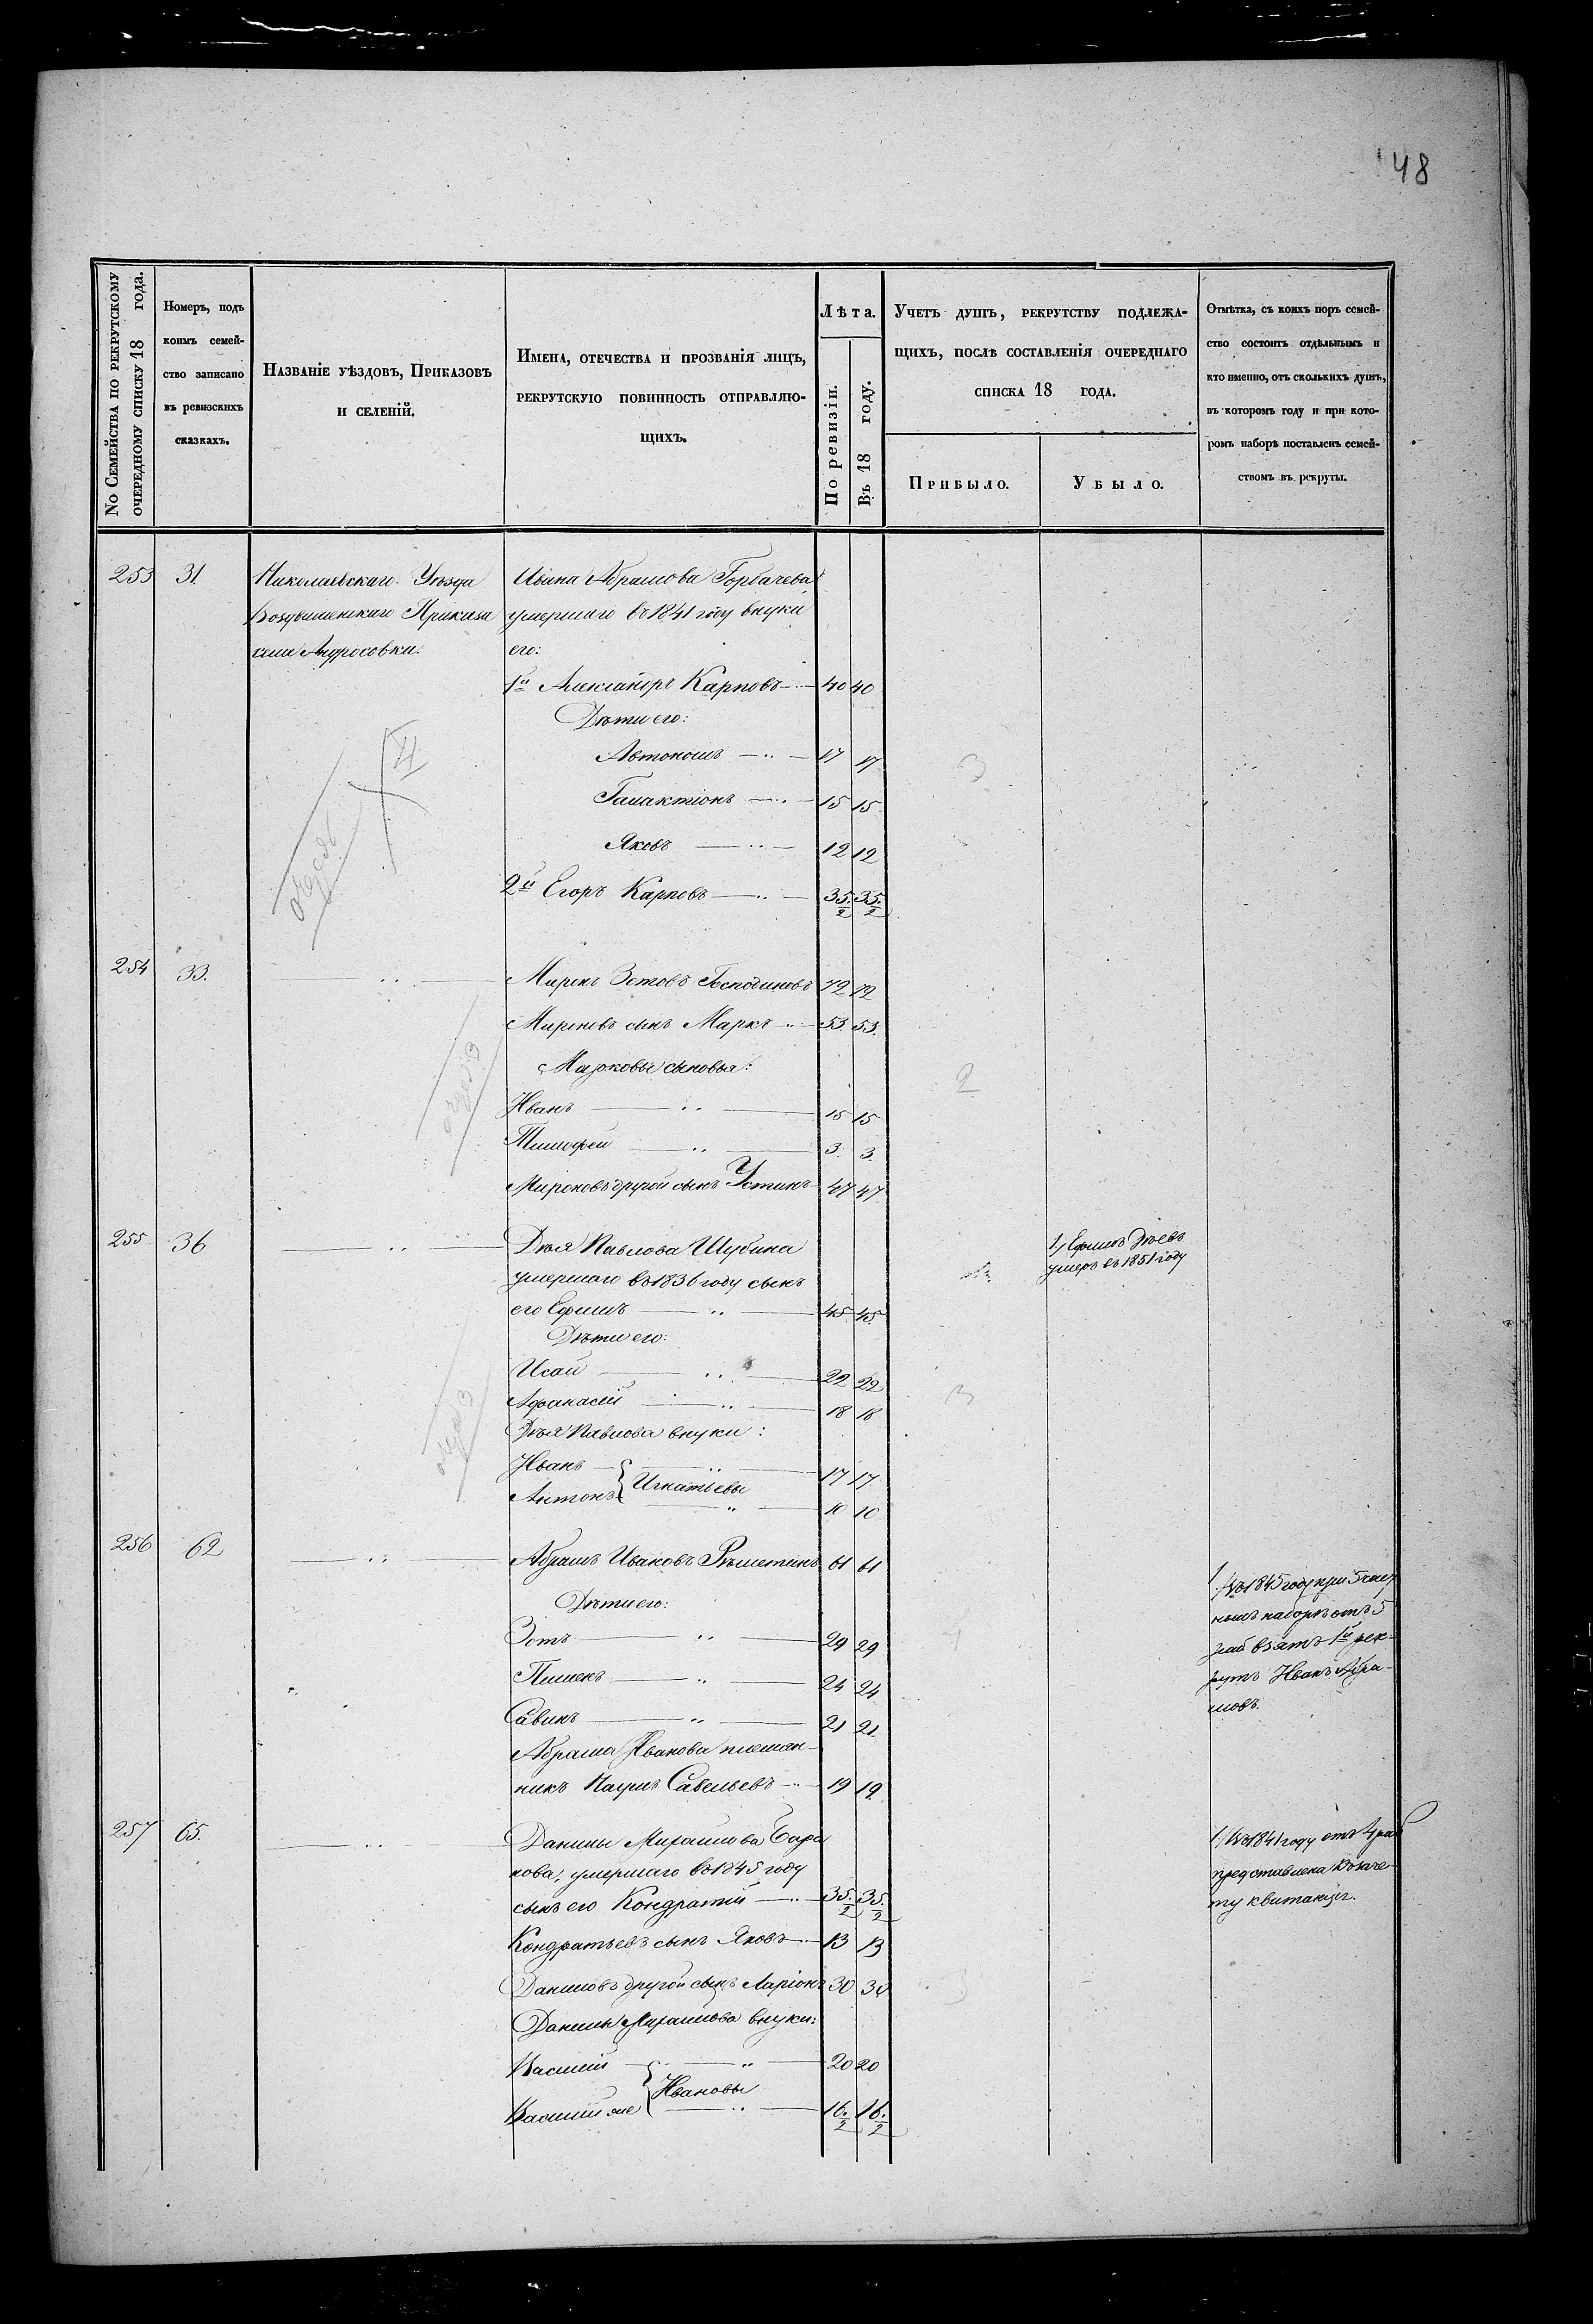 48
No Семейства по рекрутскому
очередному списку 18 года.
Номеръ, подъ
коимъ семей-
ство записано
въ ревизскихъ
сказкахъ.
Названіе уѣздовъ, Приказовъ
и селеній.
Имена, отечества и прозванія лицъ,
рекрутскую повинность отправляю-
щихъ.
Лѣта.
По ревизіи.
Въ 18 году.
Учетъ душъ, рекрутству подлежа-
щихъ, послѣ составленія очереднаго
списка 18 года.
Прибыло.
Убыло.
Отмѣтка, съ коихъ поръ семей-
ство состоитъ отдѣльнымъ и
кто именно, отъ сколькихъ душъ,
въ которомъ году и при кото-
ромъ наборѣ поставленъ семей-
ствомъ въ рекруты.
253 31 Николаевскаго Уѣзда Ивана Абрамова Горбачева
Воздвиженскаго Приказа умершаго въ 1841 году внуки
села Андросовки. его:
1й Александръ Карповъ 40 40
Дѣти его:
Автономъ 17 17
3
Галактіонъ 15 15
Яковъ 12 12
2й Егоръ Карповъ 35.½ 35.½
254 33. Миронъ Зотовъ Господиновъ 72 72
Мироновъ сынъ Маркъ 53. 53.
Марковы сыновья:
2
Иванъ 15 15
Тимофей 3. 3.
Мироновъ другой сынъ Устинъ 47 47
255 36 Дѣя Павлова Шубина
1) Ефимъ Дѣевъ
умершаго въ 1836 году сынъ
умеръ въ 1851 году
его Ефимъ 45 45.
Дѣти его:
Исай 22 22
3
Афанасій 18 18
Дѣя Павлова внуки:
Иванъ 17 17
Игнатьевы
Антонъ 10 10
256 62 Абрамъ Ивановъ Рѣшетинъ 61 61
Дѣти его:
1) Въ 1845 году при 5 част
номъ наборѣ отъ 5
Зотъ 29 29
раб взятъ 1й рек-
Пименъ 24 24
рутъ Иванъ Абра-
мовъ.
Савинъ 21 21.
Абрама Иванова племян-
никъ Савельевъ 19 19.
257 65. Данилы
1) Въ 1841 году отъ 4 раб
умершаго въ 1845 году
представлена къ заче-
сынъ его Кондратій 35.½ 35.½
ту квитанція.
Кондратьевъ сынъ Яковъ 13 13
Даниловъ другой сынъ Ларіонъ 30 30
3
Данилы внуки:
Василій 20 20
Ивановы
Василій же 16.½ 16.½